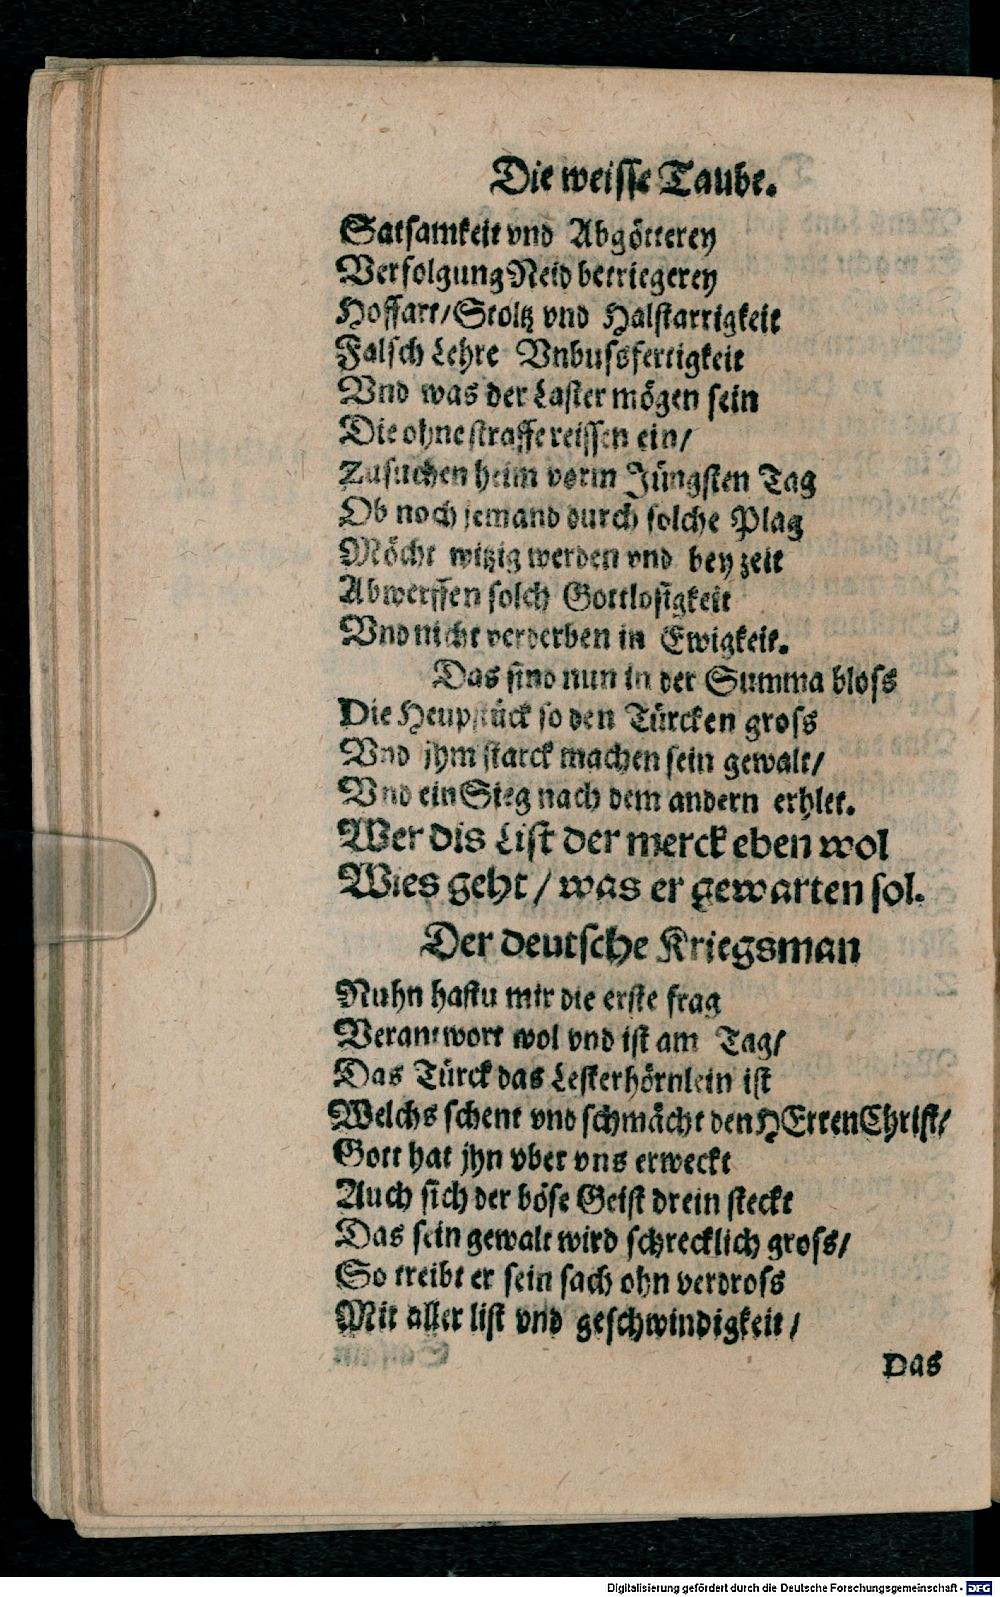 Die weisse Taube.
Satsamkeit vnd Abgötterey
Verfolgung Neid betriegerey
Hoffart/Stoltz vnd Halstarrigkeit
Falsch Lehre Vnbussfertigkeit
Vnd was der Laster mögen sein
Die ohne straffe reissen ein/
Zusuchen heim vorm Jüngsten Tag
Ob noch jemand durch solche Plag
Möcht witzig werden vnd bey zeit
Abwerffen solch Gottlosigkeit
Vnd nicht verderben in Ewigkeit.
Das sind nun in der Summa bloss
Die Heupstück so den Türcken gross
Vnd jhm starck machen sein gewalt/
Vnd ein Sieg nach dem andern erhlet.
Wer dis List der merck eben wol
Wies geht / was er gewarten sol.
Der deutsche Kriegsman
Nuhn hastu mir die erste frag
Verantwort wol vnd ist am Tag/
Das Türck das Lesterhörnlein ist
Welchs schent vnd schmächt den HErren Christ/
Gott hat jhn vber vns erweckt
Auch sich der böse Geist drein steckt
Das sein gewalt wird schrecklich gross/
So treibt er sein sach ohn verdross
Mit aller list vnd geschwindigkeit /
Das
Digitalisierung gefördert durch die Deutsche Forschungsgemeinschaft - DFG